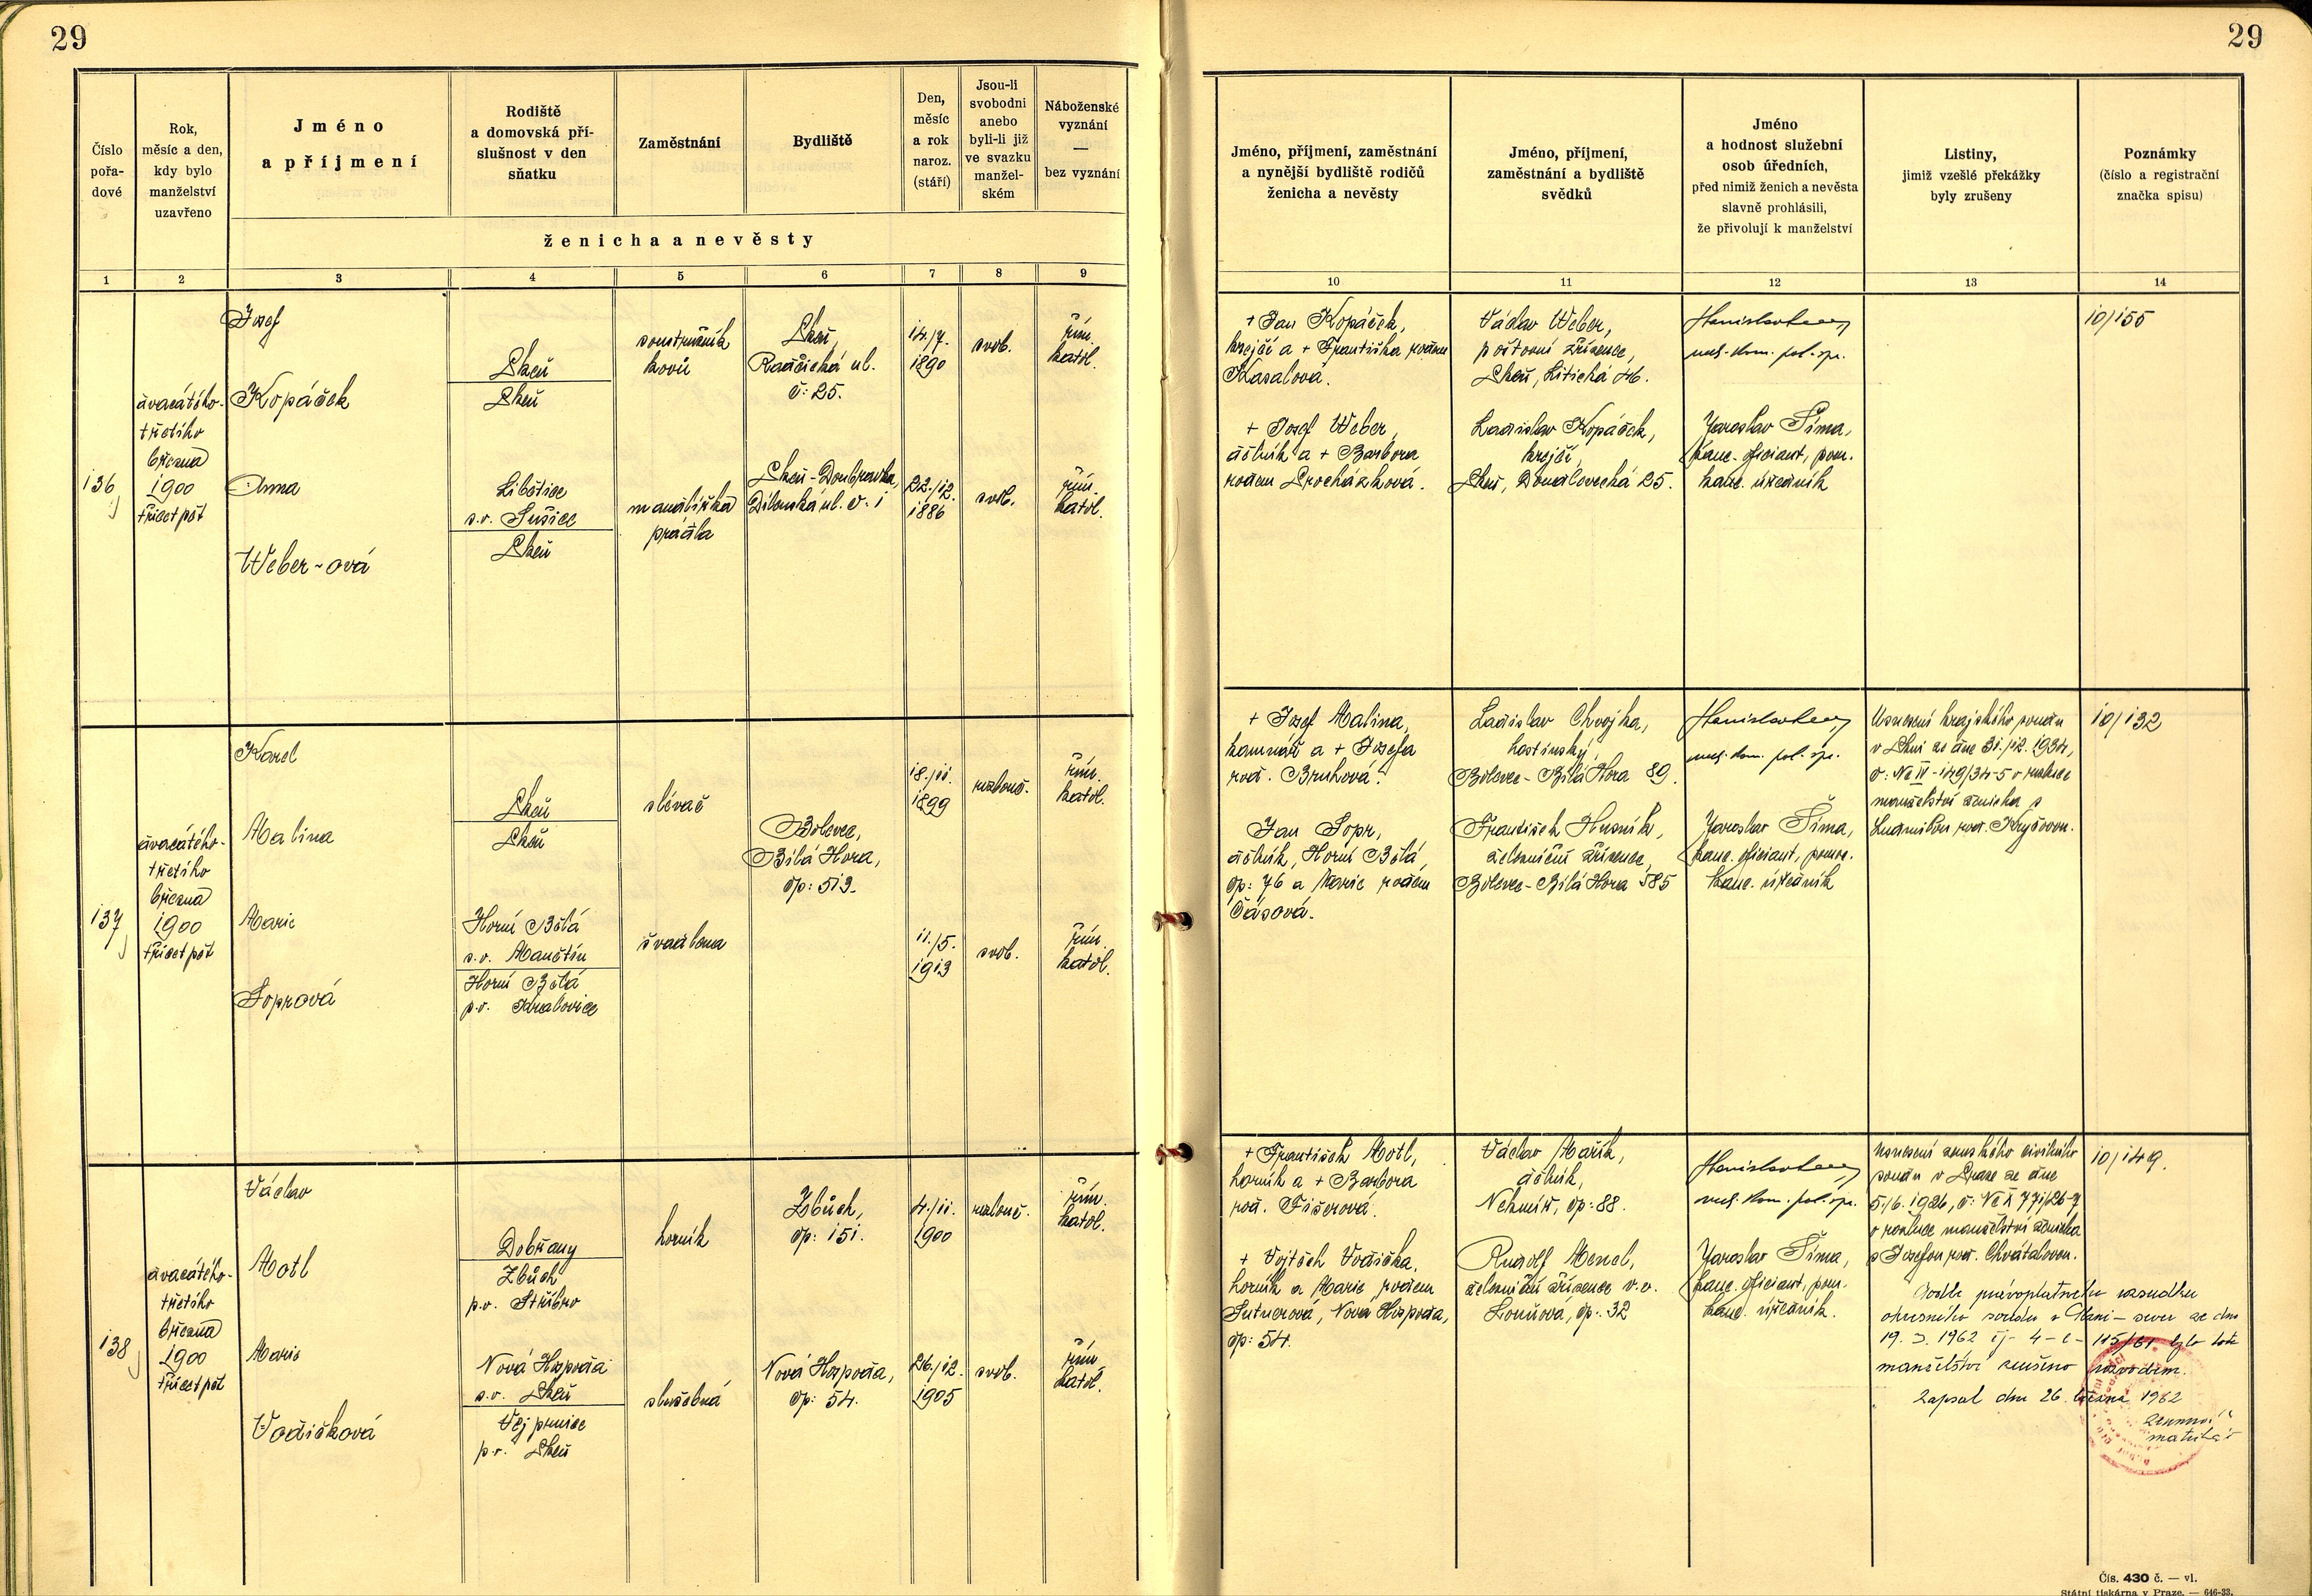 29
29
Číslo
pořa-
dové
Rok,
měsíc a den,
kdy bylo
manželství
uzavřeno
Jméno
a příjmení
Rodiště
a domovská pří-
slušnost v den
sňatku
Zaměstnání
Bydliště
Den,
měsíc
a rok
naroz.
(stáří)
Jsou-li
svobodni
anebo
byli-li již
ve svazku
manžel-
ském
Náboženské
vyznání
—
bez vyznání
ženicha a nevěsty
1 2 3 4 5 6 7 8 9
Jméno, příjmení, zaměstnání
a nynější bydliště rodičů
ženicha a nevěsty
Jméno, příjmení,
zaměstnání a bydliště
svědků
Jméno
a hodnost služební
osob úředních,
před nimiž ženich a nevěsta
slavně prohlásili,
že přivolují k manželství
Listiny,
jimiž vzešlé překážky
byly zrušeny
Poznámky
(číslo a registrační
značka spisu)
10 11 12 13 14
136
dvacátého-
třetího
března
1900
třicet pět
Josef
Kopáček
Plzeň
Plzeň
soustružník
kovů
Plzeň,
Radčická ul.
č: 25.
14./7.
1890
svob.
řím.
katol.
Anna
Weber-ová
Libětice
s.o. Sušice
Plzeň
mandlířka
prádla
Plzeň-Doubravka,
ul. č. 1
22./12.
1886
svob.
řím.
katol.
+ Jan Kopáček,
krejčí a + Františka rodem
Kasalová.
+ Josef Weber,
dělník a + Barbora
rodem Procházková.
Václav Weber,
poštovní zřízenec,
Plzeň, Litická 46.
Ladislav Kopáček,
krejčí,
Plzeň, Doudlevecká 25.
pol. spr.
Jaroslav Šíma,
kanc. oficiant, pom.
kanc. úředník
10/155
137
dvacátého-
třetího
března
1900
třicet pět
Karel
Malina
Plzeň
Plzeň
slévač
Bolevec,
Bílá Hora,
čp: 513.
18./11.
1899
rozlouč.
řím.
katol.
Marie
Soprová
Horní Bělá
s.o. Manětín
Horní Bělá
p.o. Kralovice
švadlena
11./5.
1913
svob.
řím.
katol.
+ Josef Malina,
kameník a + Josefa
rod. Bruhová.
Jan Sopr,
dělník, Horní Bělá,
čp: 76 a Marie rodem
Čásová.
Ladislav Chvojka,
hostinský,
Bolevec-Bílá Hora 89.
František Husník,
železniční zřízenec,
Bolevec-Bílá Hora 585
pol. spr.
Jaroslav Šíma,
kanc. oficiant, pomoc.
kanc. úředník
Usnesení krajského soudu
v Plzni ze dne 31./12. 1934,
č: Nc II-149/34-5 o rozluce
manželství ženicha s
Ludmilou rod. Kryšovou.
10/132
138
dvacátého-
třetího
března
1900
třicet pět
Václav
Motl
Dobřany
Zbůch
p.o. Stříbro
horník
Zbůch,
čp: 151.
4./11.
1900
rozlouč.
řím.
katol.
Marie
Vodičková
Nová Hospoda
s.o. Plzeň
Vejprnice
p.o. Plzeň
služebná
Nová Hospoda,
čp: 54.
26./12.
1905
svob.
řím.
katol.
+ František Motl,
horník a + Barbora
rod. Fišerová.
+ Vojtěch Vodička,
horník a Marie rodem
Sutnerová, Nová Hospoda,
čp: 54.
Václav Mařík,
dělník,
Nekmíř, čp: 88.
Rudolf Mencl,
železniční zřízenec v.v.
čp: 32
pol. spr.
Jaroslav Šíma,
kanc. oficiant, pom.
kanc. úředník.
Usnesení zemského civilního
soudu v Praze ze dne
5./6. 1926, č: Nc X 771/26-7
o rozluce manželství ženicha
s Josefou rod. Chvátalovou.
Podle pravoplatného rozsudku
okresního soudu v Plzni-sever ze dne
19. 3. 1962 čj-4-C-115/61 bylo toto
manželství zrušeno rozvodem.
Zapsal dne 26. března 1962
matrikář
10/149.
Čís. 430 č. — vl.
Státní tiskárna v Praze. — 646-33.